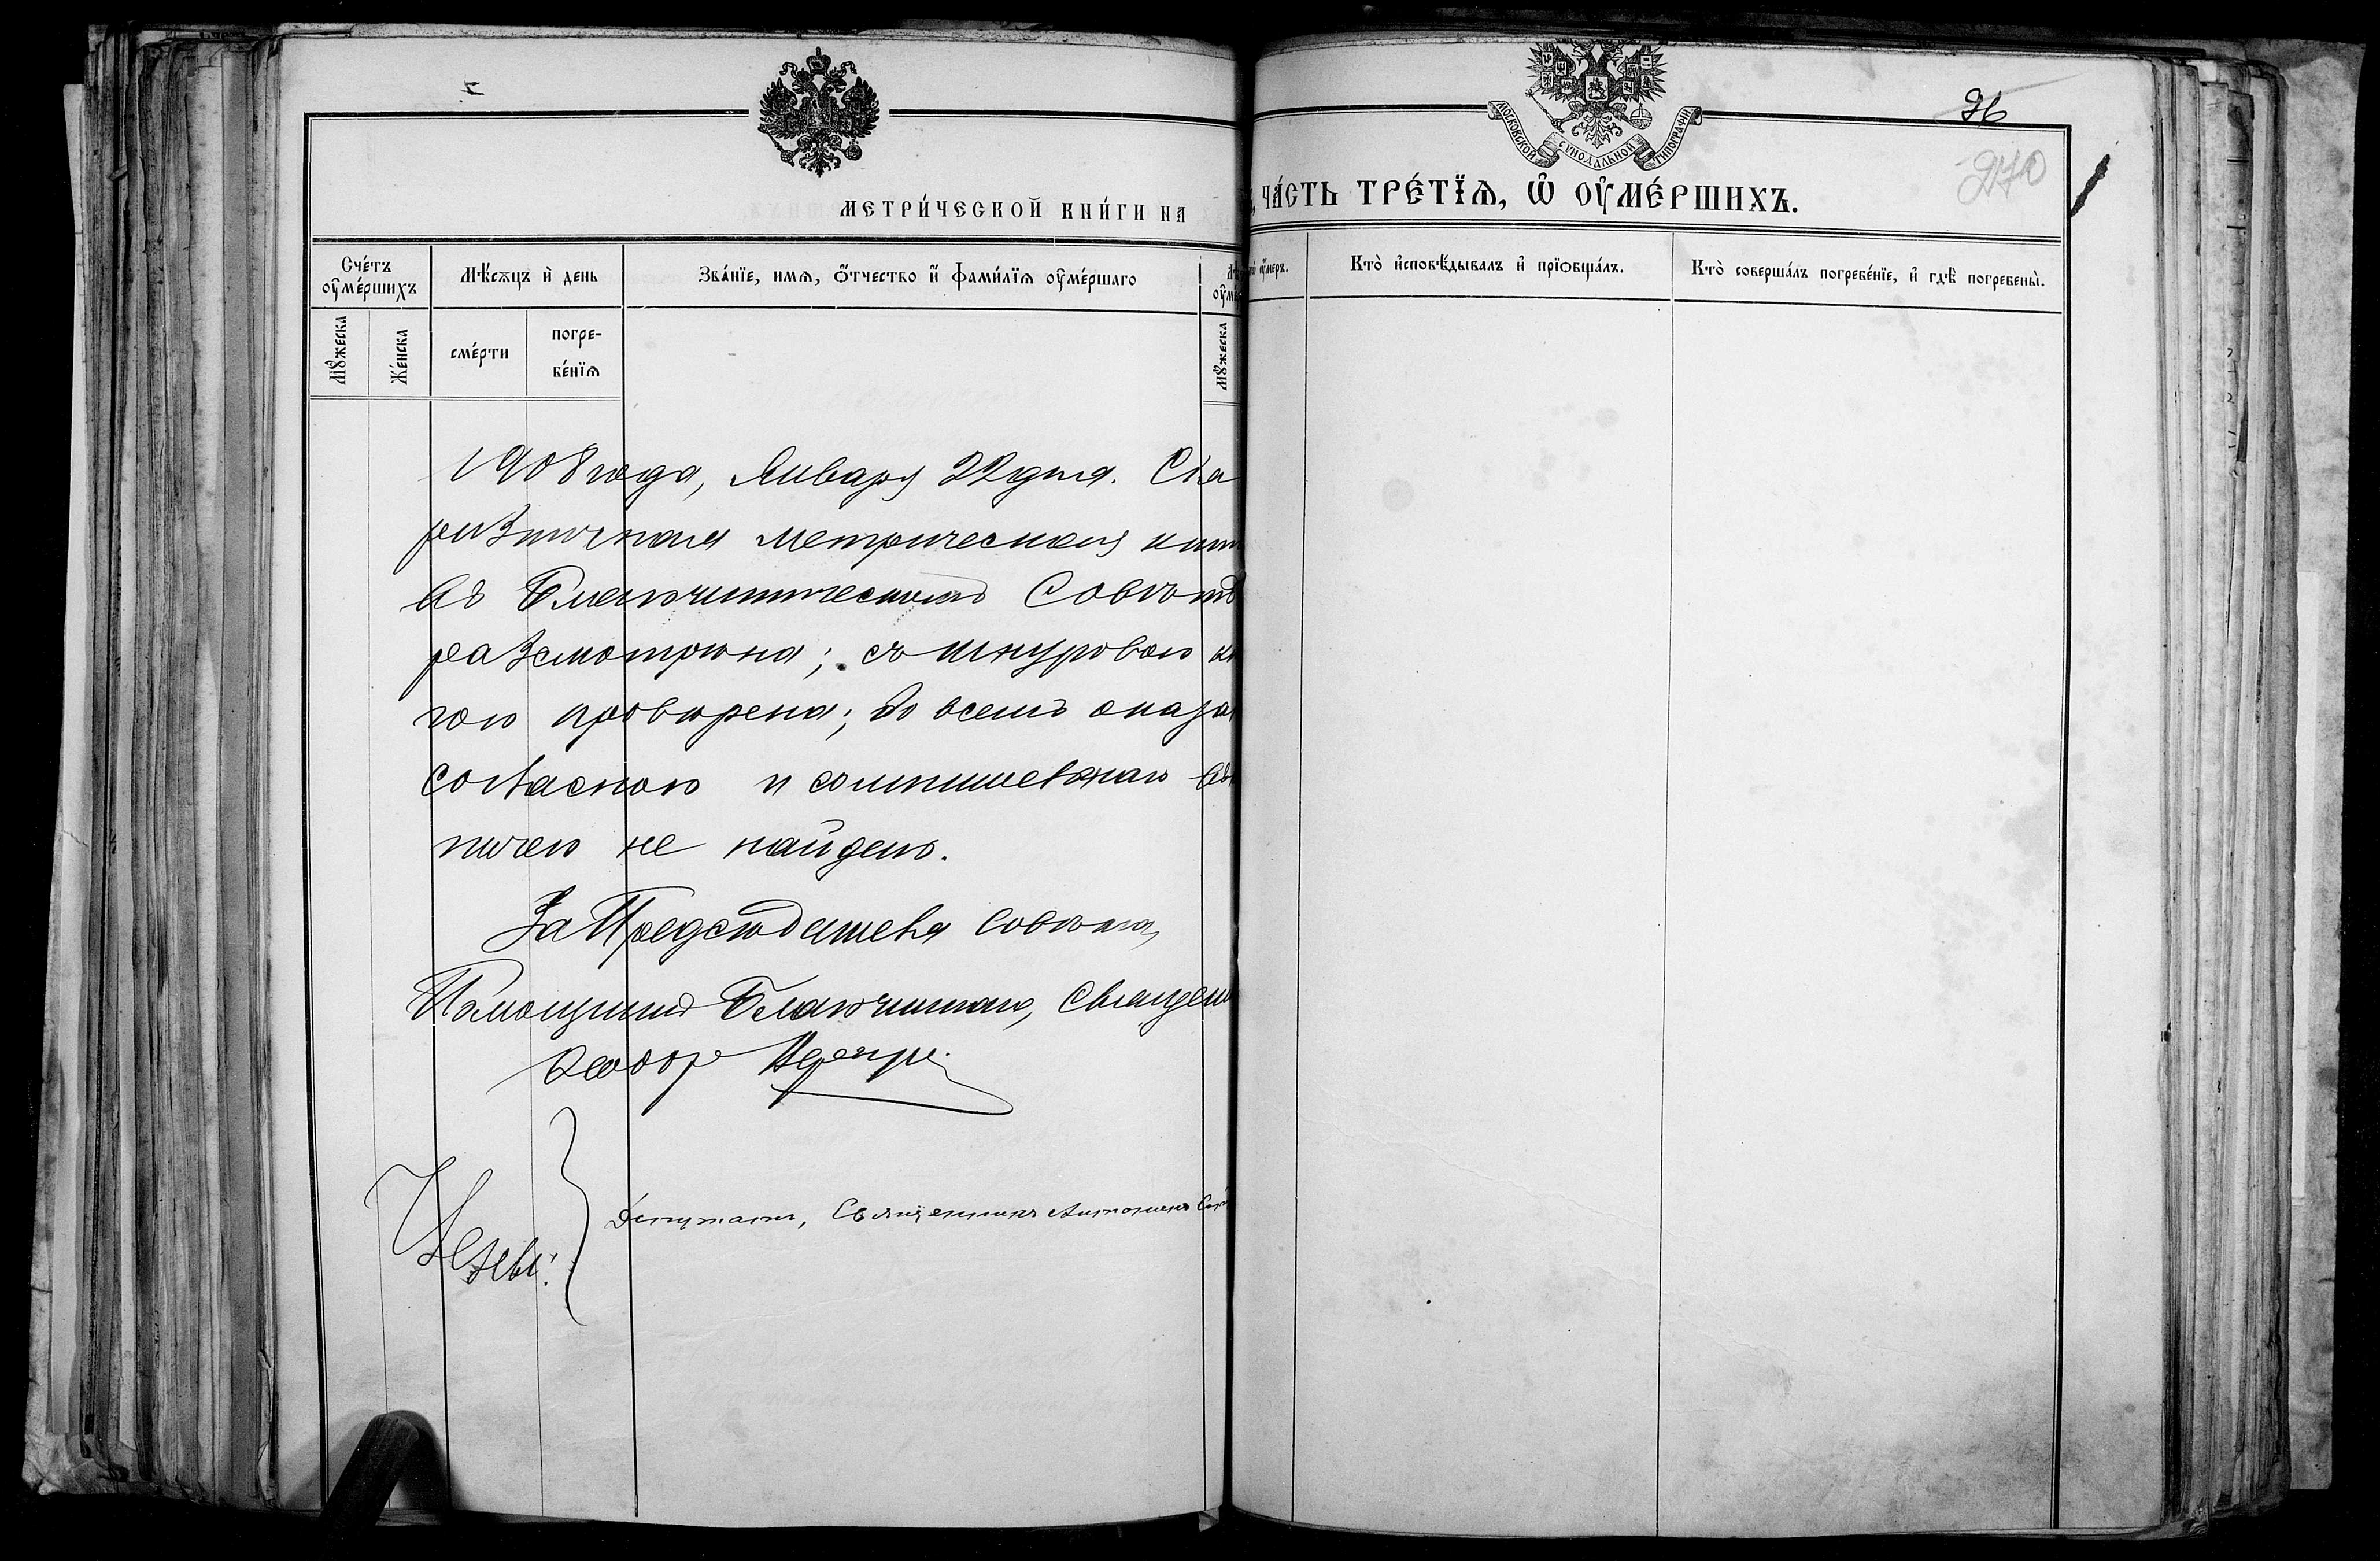 26
270
МЕТРИ́ЧЕСКОЙ КНИ́ГИ НА
ЧА́СТЬ ТРЕ́ТЇѦ, Ѡ҆ ОУ҆МЕ́РШИХЪ.
МОСКОВСКОЙ СѴНОДАЛЬНОЙ ТИПОГРАФІИ
Сче́тъ оу҆ме́ршихъ
Мѣ́сѧцъ и҆ день
Зва́нїе, имѧ, ѻ҆́тчество и҆ фами́лїѧ оу҆ме́ршаго
Кто̀ и҆сповѣ́дывалъ и҆ прїѡбща́лъ.
Кто̀ соверша́лъ погребе́нїе, и҆ гдѣ̀ погребены̀.
Мꙋ́жеска
Же́нска
сме́рти
погре-
бе́нїѧ
Мꙋ́жеска
1908 года, Января 22 дня. Сія
метрическая
въ Благочинническомъ Совѣтѣ
разсмотрѣна; съ шнуровою
гою провѣрена; во всемъ оказа
согласною и сомнительнаго въ
ничего не найдено.
За Предсѣдателя Совѣта,
Помощникъ Благочиннаго, Священ
Ѳеодоръ
Депутатъ, Священникъ Антоній